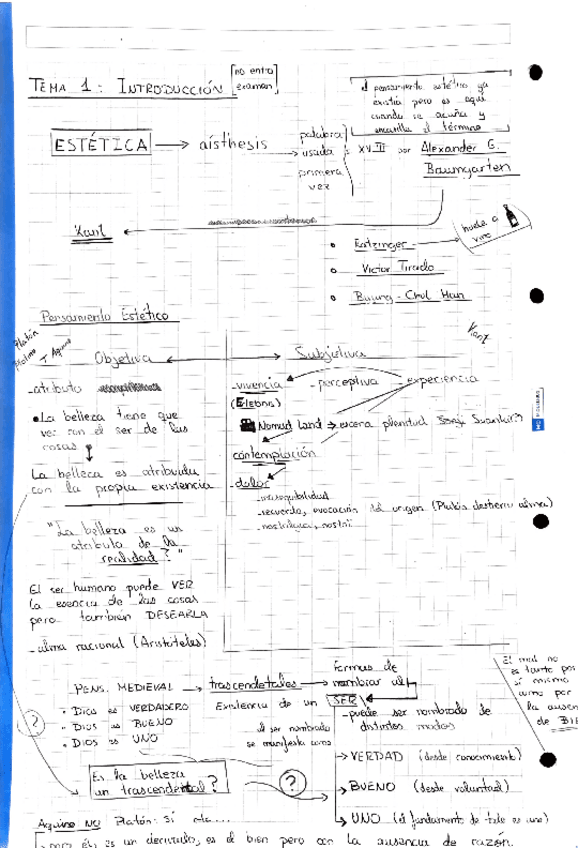 TEMA 1: INTRODUCCIÓN
[no entra
examen]
el pensamiento estético ya
existía pero es aquí
cuando se acuña y
el término
ESTÉTICA → aísthesis
palabra
usada
primera
vez
XVIII por Alexander G.
Baumgarten
Kant
• Ratzinger
• Víctor Tirado
• Byung-Chul Han
huele a
vino
Pensamiento Estético
Platón
Aquino
Objetiva
Subjetiva
Kant
-atributo
•La belleza tiene que
ver con el ser de las
cosas
La belleza es atribuida
con la propia existencia
"La belleza es un
atributo de la
realidad?"
El ser humano puede VER
la esencia de las cosas
pero también DESEARLA
-alma racional (Aristóteles)
-vivencia
-perceptiva
experiencia
Nomad Land → escena plenitud
contemplación
-dolor
-recuerdo, evocación del origen (Platón destierro alma)
PENS. MEDIEVAL → trascendetales → formas de
nombrar al
SER
• Dios es VERDADERO
• Dios es BUENO
• Dios es UNO
Existencia de un
-puede ser nombrado de
distintos modos
al ser nombrado
se manifiesta como
→ VERDAD (desde conocimiento)
→ BUENO (desde voluntad)
→ UNO (el fundamento de todo es uno)
El mal no
es tanto por
sí mismo
como por
la ausen
de BIE
?
Es la belleza
un trascendental?
?
Aquino NO Platón: Sí
es un derivado, es el bien pero con la ausencia de razón.